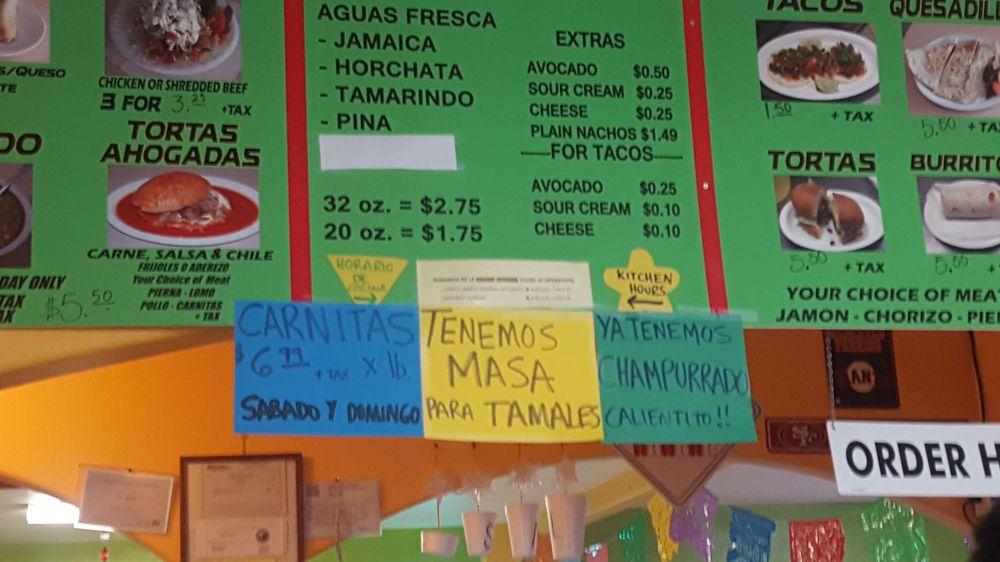 S/QUESO
TE
CHICKEN OR SHREDDED BEEF
3 FOR 3.25 +TAX
DO
TORTAS
AHOGADAS
CARNE, SALSA & CHILE
FRIJOLES O ADEREZO
Your Choice of Meat
PIERNA - LOMO
POLLO - CARNITAS
+ TAX
DAY ONLY
TAX
AX
$5.50
AGUAS FRESCA
- JAMAICA
- HORCHATA
- TAMARINDO
- PINA
32 oz. = $2.75
20 oz. = $1.75
EXTRAS
AVOCADO $0.50
SOUR CREAM $0.25
CHEESE $0.25
PLAIN NACHOS $1.49
FOR TACOS
AVOCADO $0.25
SOUR CREAM $0.10
CHEESE $0.10
TACOS
1.50 + TAX
QUESADILL
5.50 + TA
TORTAS
5.50 + TAX
BURRITO
5.50 +
YOUR CHOICE OF MEAT
JAMON - CHORIZO - PIER
HORARIO
DE
COCINA
KITCHEN
HOURS
CARNITAS
$6.99 + TAX x lb.
SABADO Y DOMINGO
TENEMOS
MASA
PARA TAMALES
YA TENEMOS
CHAMPURRADO
CALIENTITO!!
AN
SF
ORDER H